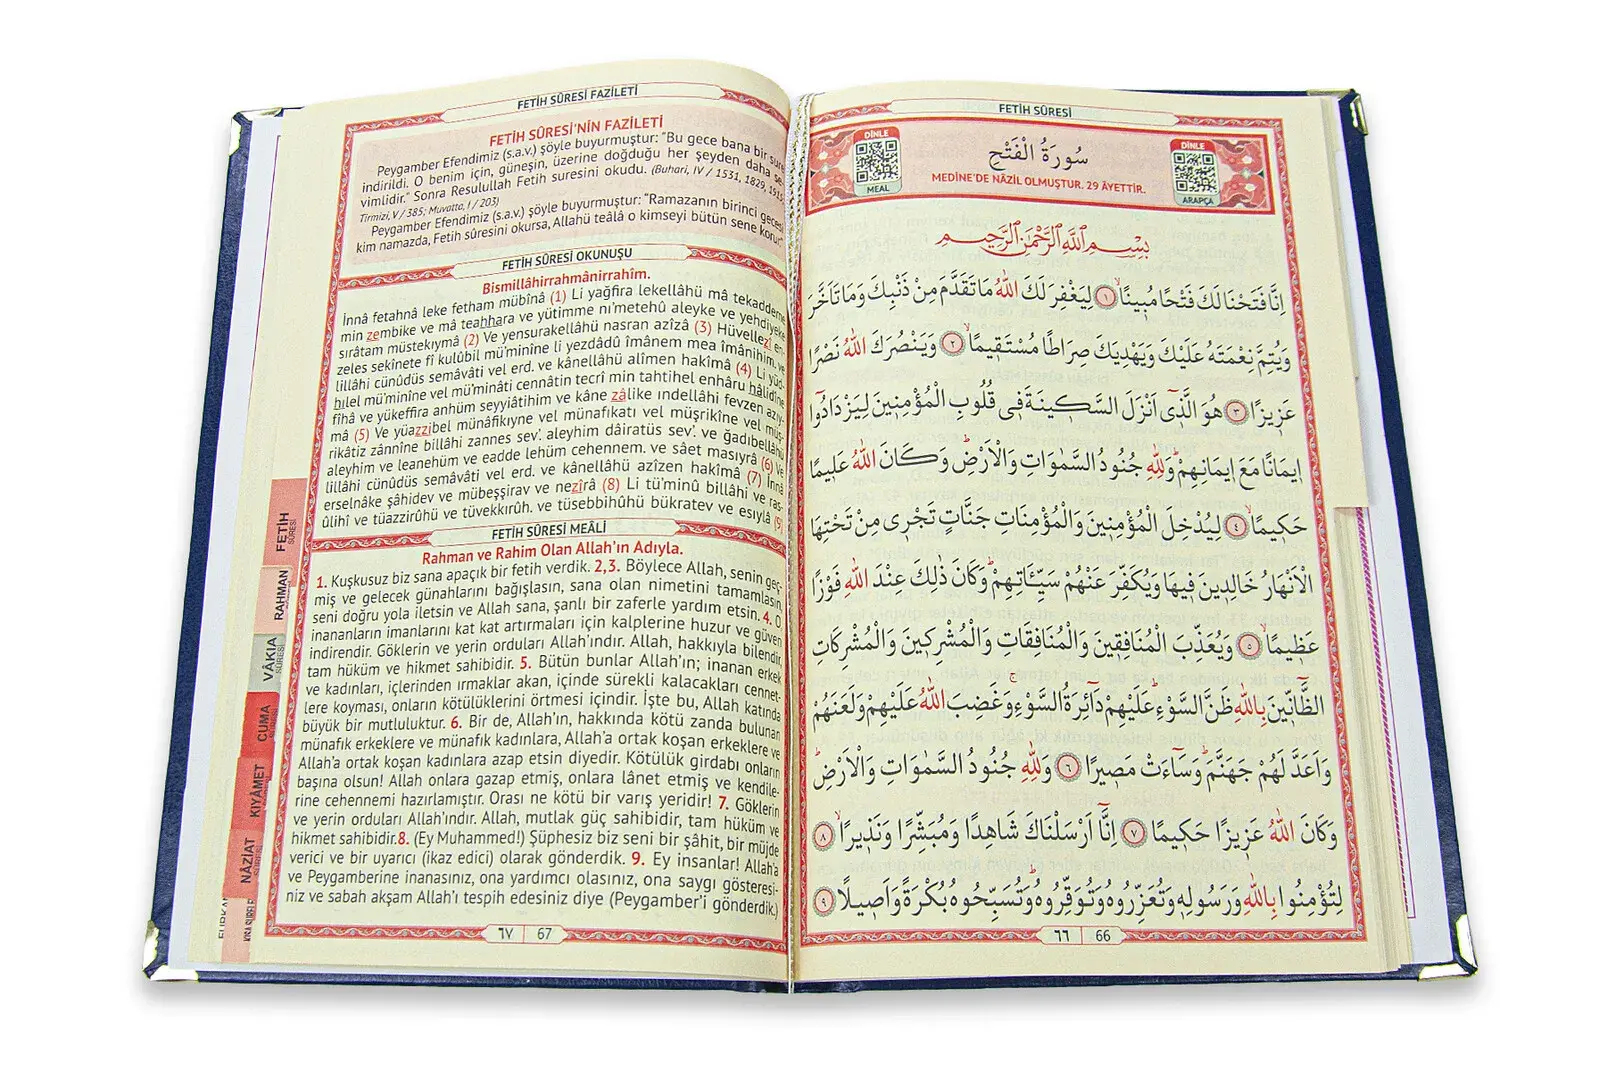 FETİH SÛRESİ
DİNLE
MEAL
سُورَةُ الْفَتْحِ
MEDİNE'DE NÂZİL OLMUŞTUR. 29 ÂYETTİR.
DİNLE
ARAPÇA
بِسْمِ اللّٰهِ الرَّحْمٰنِ الرَّحِيمِ
اِنَّا فَتَحْنَا لَكَ فَتْحًا مُبِينًاۙ ﴿١﴾ لِيَغْفِرَ لَكَ اللّٰهُ مَا تَقَدَّمَ مِنْ ذَنْبِكَ وَمَا تَاَخَّرَ
وَيُتِمَّ نِعْمَتَهُ عَلَيْكَ وَيَهْدِيَكَ صِرَاطًا مُسْتَقِيمًاۙ ﴿٢﴾ وَيَنْصُرَكَ اللّٰهُ نَصْرًا
عَزِيزًا ﴿٣﴾ هُوَ الَّذِٓي اَنْزَلَ السَّكِينَةَ فِي قُلُوبِ الْمُؤْمِنِينَ لِيَزْدَادُٓوا
اِيمَانًا مَعَ اِيمَانِهِمْۜ وَلِلّٰهِ جُنُودُ السَّمٰوَاتِ وَالْاَرْضِۜ وَكَانَ اللّٰهُ عَلِيمًا
حَكِيمًاۙ ﴿٤﴾ لِيُدْخِلَ الْمُؤْمِنِينَ وَالْمُؤْمِنَاتِ جَنَّاتٍ تَجْرِي مِنْ تَحْتِهَا
الْاَنْهَارُ خَالِدِينَ فِيهَا وَيُكَفِّرَ عَنْهُمْ سَيِّـَٔاتِهِمْۜ وَكَانَ ذٰلِكَ عِنْدَ اللّٰهِ فَوْزًا
عَظِيمًاۙ ﴿٥﴾ وَيُعَذِّبَ الْمُنَافِقِينَ وَالْمُنَافِقَاتِ وَالْمُشْرِكِينَ وَالْمُشْرِكَاتِ
الظَّٓانِّينَ بِاللّٰهِ ظَنَّ السَّوْءِۜ عَلَيْهِمْ دَٓائِرَةُ السَّوْءِۚ وَغَضِبَ اللّٰهُ عَلَيْهِمْ وَلَعَنَهُمْ
وَاَعَدَّ لَهُمْ جَهَنَّمَۜ وَسَٓاءَتْ مَصِيرًا ﴿٦﴾ وَلِلّٰهِ جُنُودُ السَّمٰوَاتِ وَالْاَرْضِۜ
وَكَانَ اللّٰهُ عَزِيزًا حَكِيمًا ﴿٧﴾ اِنَّٓا اَرْسَلْنَاكَ شَاهِدًا وَمُبَشِّرًا وَنَذِيرًاۙ ﴿٨﴾
لِتُؤْمِنُوا بِاللّٰهِ وَرَسُولِهِ وَتُعَزِّرُوهُ وَتُوَقِّرُوهُۜ وَتُسَبِّحُوهُ بُكْرَةً وَاَصِيلًا ﴿٩﴾
٦٦ 66
FETİH SÛRESİ FAZİLETİ
FETİH SÛRESİ'NİN FAZİLETİ
Peygamber Efendimiz (s.a.v.) şöyle buyurmuştur: "Bu gece bana bir sure
indirildi. O benim için, güneşin, üzerine doğduğu her şeyden daha se-
vimlidir." Sonra Resulullah Fetih suresini okudu. (Buhari, IV / 1531, 1829, 1915;
Tirmizi, V / 385; Muvatta, I / 203)
Peygamber Efendimiz (s.a.v.) şöyle buyurmuştur: "Ramazanın birinci gecesi
kim namazda, Fetih sûresini okursa, Allahü teâlâ o kimseyi bütün sene korur."
FETİH SÛRESİ OKUNUŞU
Bismillâhirrahmânirrahîm.
İnnâ fetahnâ leke fetham mübînâ (1) Li yağfira lekellâhü mâ tekaddeme
min zembike ve mâ teahhara ve yütimme nı'metehû aleyke ve yehdiyeke
sırâtam müstekıymâ (2) Ve yensurakellâhü nasran azîzâ (3) Hüvellezî en-
zeles sekînete fî kulûbil mü'minîne li yezdâdû îmânem mea îmânihim. ve
lillâhi cünûdüs semâvâti vel erd. ve kânellâhü alîmen hakîmâ (4) Li yüd-
hılel mü'minîne vel mü'minâti cennâtin tecrî min tahtihel enhâru hâlidîne
fîhâ ve yükeffira anhüm seyyiâtihim ve kâne zâlike ındellâhi fevzen azıy-
mâ (5) Ve yüazzibel münâfikıyne vel münafıkati vel müşrikîne vel müş-
rikâtiz zânnîne billâhi zannes sev'. aleyhim dâiratüs sev'. ve ğadıbellâhü
aleyhim ve leanehüm ve eadde lehüm cehennem. ve sâet masıyrâ (6) Ve
lillâhi cünûdüs semâvâti vel erd. ve kânellâhü azîzen hakîmâ (7) İnnâ
erselnâke şâhidev ve mübeşşirav ve nezîrâ (8) Li tü'minû billâhi ve ras-
ûlihî ve tüazzirûhü ve tüvekkırûh. ve tüsebbihûhü bükratev ve esıylâ (9)
FETİH SÛRESİ MEÂLİ
Rahman ve Rahim Olan Allah'ın Adıyla.
1. Kuşkusuz biz sana apaçık bir fetih verdik. 2,3. Böylece Allah, senin geç-
miş ve gelecek günahlarını bağışlasın, sana olan nimetini tamamlasın,
seni doğru yola iletsin ve Allah sana, şanlı bir zaferle yardım etsin. 4. O
inananların imanlarını kat kat artırmaları için kalplerine huzur ve güven
indirendir. Göklerin ve yerin orduları Allah'ındır. Allah, hakkıyla bilendir,
tam hüküm ve hikmet sahibidir. 5. Bütün bunlar Allah'ın; inanan erkek
ve kadınları, içlerinden ırmaklar akan, içinde sürekli kalacakları cennet-
lere koyması, onların kötülüklerini örtmesi içindir. İşte bu, Allah katında
büyük bir mutluluktur. 6. Bir de, Allah'ın, hakkında kötü zanda bulunan
münafık erkeklere ve münafık kadınlara, Allah'a ortak koşan erkeklere ve
Allah'a ortak koşan kadınlara azap etsin diyedir. Kötülük girdabı onların
başına olsun! Allah onlara gazap etmiş, onlara lânet etmiş ve kendile-
rine cehennemi hazırlamıştır. Orası ne kötü bir varış yeridir! 7. Göklerin
ve yerin orduları Allah'ındır. Allah, mutlak güç sahibidir, tam hüküm ve
hikmet sahibidir.8. (Ey Muhammed!) Şüphesiz biz seni bir şâhit, bir müjde
verici ve bir uyarıcı (ikaz edici) olarak gönderdik. 9. Ey insanlar! Allah'a
ve Peygamberine inanasınız, ona yardımcı olasınız, ona saygı gösteresi-
niz ve sabah akşam Allah'ı tespih edesiniz diye (Peygamber'i gönderdik.)
٦٧ 67
FETİH
SÛRESİ
RAHMAN
VÂKIA
SÛRESİ
CUMA
KIYÂMET
NÂZİAT
KISA SURELER